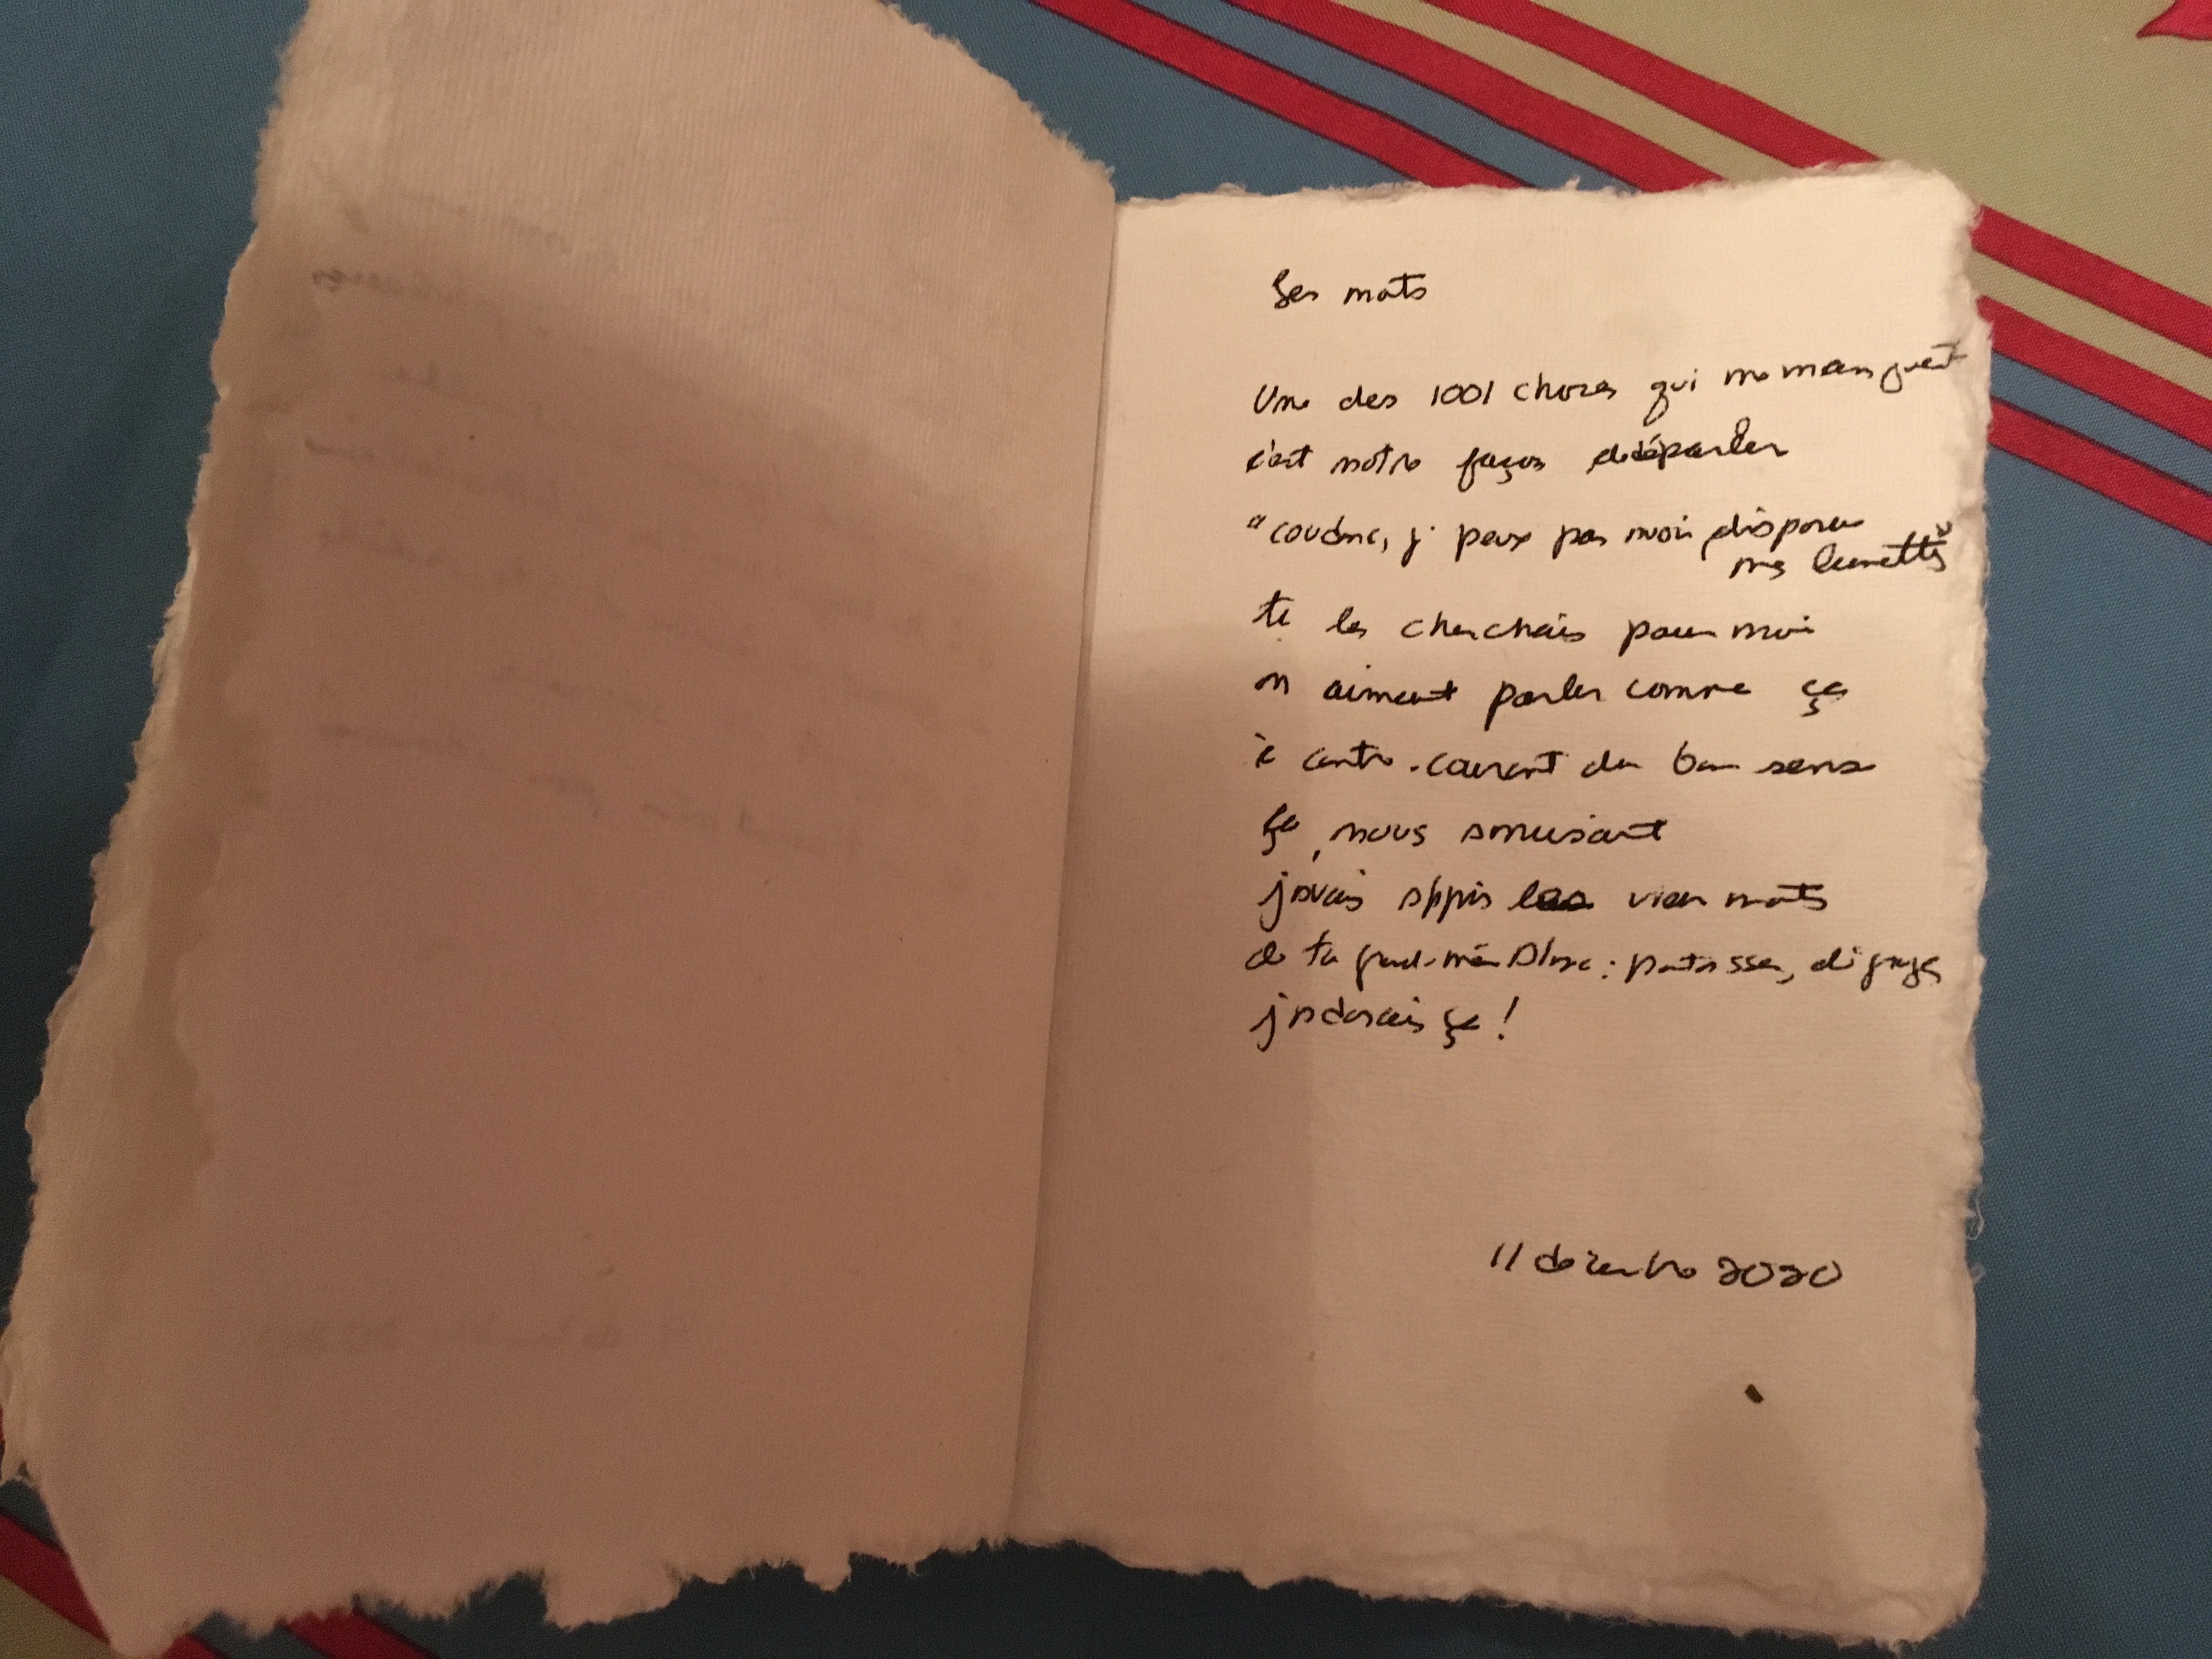 Les mots
Une des 1001 choses qui me manquent
c'est notre façon de déparler
"coudnc, j' peux pas moi disparu
mes lunettes"
te les cherchais pour moi
on aiment parler comme ça
à contre-courant du bon sens
ça nous amusait
j'avais appris les vieux mots
de ta grand-mère :
j'adorais ça !
11 décembre 2020